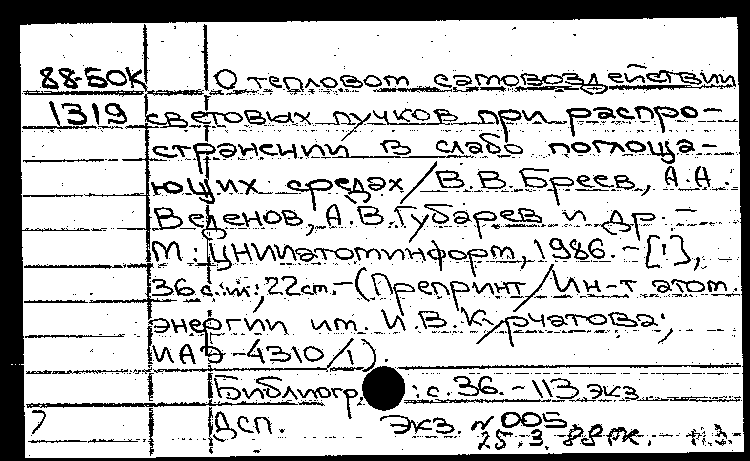 88-50К О тепловом самовоздействии
1319 световых пучков при распро-
странении в слабо поглоща-
ющих средах / В.В. Бреев, А.А.
Веденов, А.В. Губарев и др. -
М: ЦНИИатоминформ, 1986. - [1],
36 с. ил; 22 см. - (Препринт / Ин-т атом.
энергии им. И.В. Курчатова;
ИАЭ-4310/1).
Библиогр. : с. 36. - 113 экз
ДСП. Экз. № 005.
25.3.88